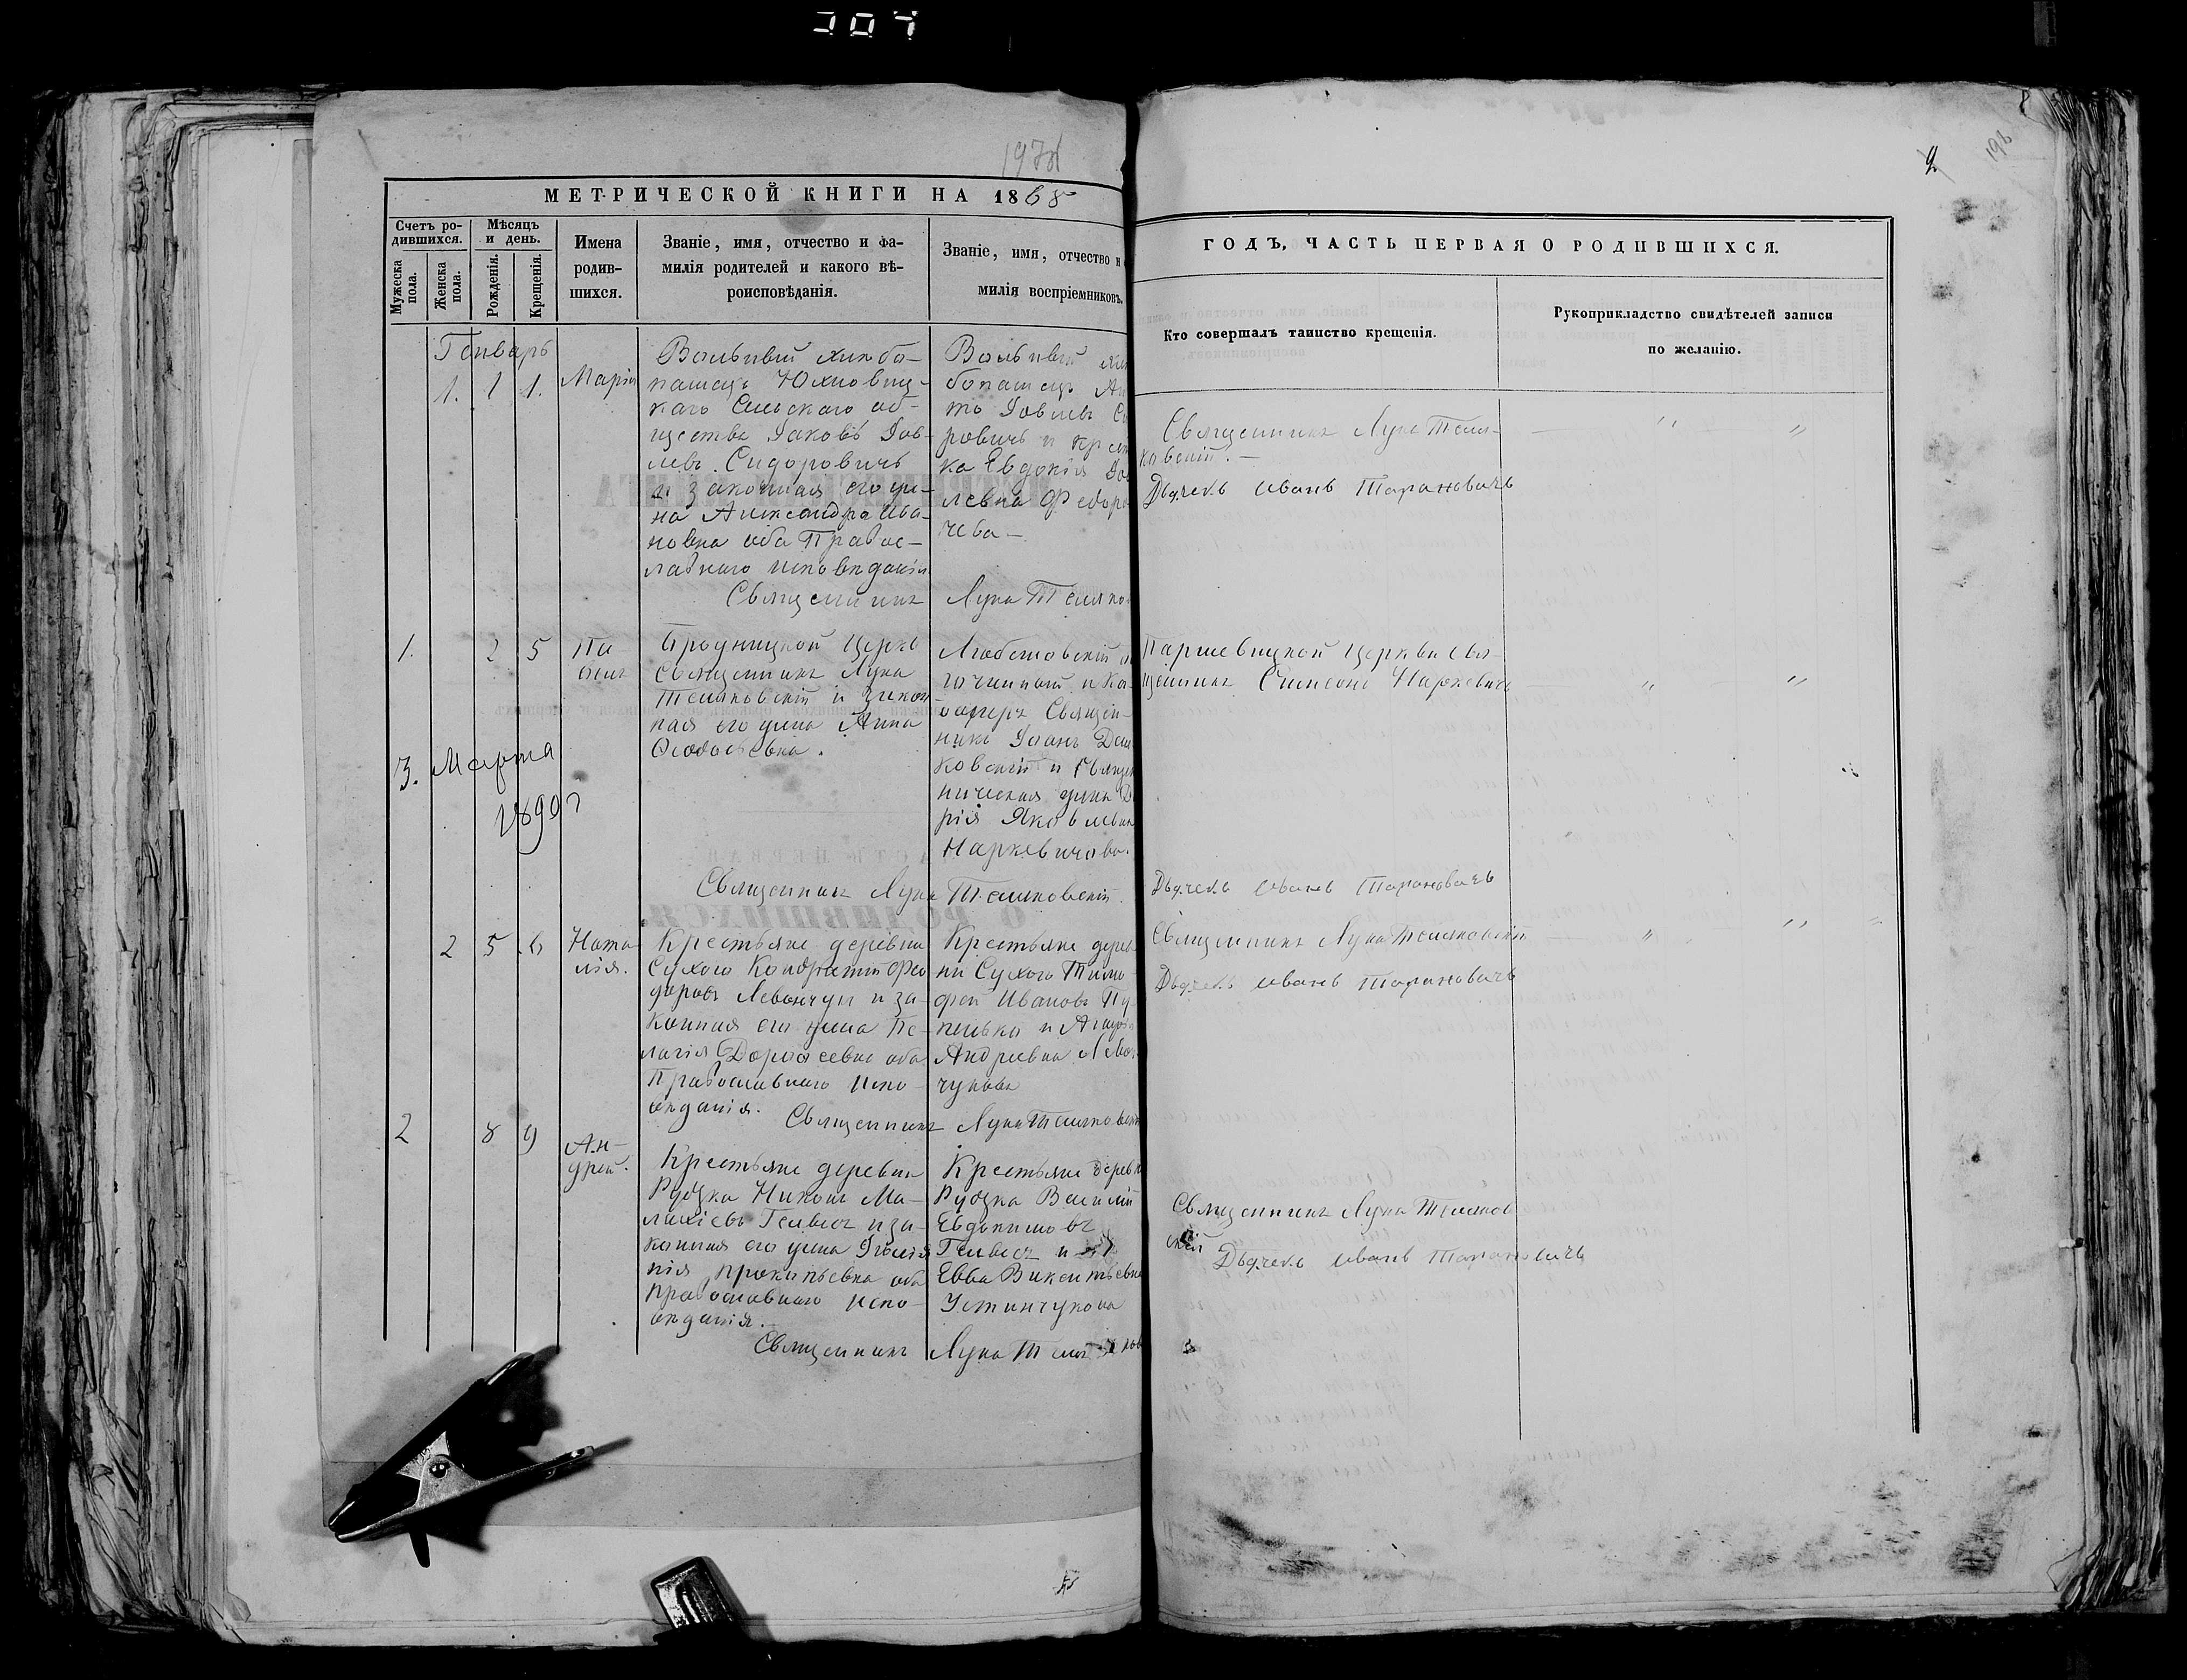 307
197
МЕТРИЧЕСКОЙ КНИГИ НА 1868
Счетъ родившихся.
Мужеска пола.
Женска пола.
Мѣсяцъ и день.
Рожденія.
Крещенія.
Имена
родив-
шихся.
Званіе, имя, отчество и фа-
милія родителей и какого вѣ-
роисповѣданія.
Званіе, имя, отчество и
милія воспріемниковъ.
Генварь
1. 1 1.
Марія
Вольный хлебо-
пашецъ Юхновиц-
каго Сельскаго об-
щества Іаковъ Іов-
левъ Сидоровичъ
и законная его же-
на Александра Ива-
новна оба Правос-
лавнаго исповѣданія
Вольный
бопашецъ
Іовлевъ
ровичъ и
ка Евдокія
левна Федоро
чева
Священникъ Лука
1. 2 5
Церкв
Священникъ Лука
Теляковскій и закон
ная его жена Анна
Любешовскій
гочинный и
Священ-
никъ Іоанъ
ковскій и Священ
ническая жена
рія Яковлевна
Наркевичова.
3. Марта
1890 г
Священникъ Лука Теляковскій.
2 5 6
Ната
лія.
Крестьяне деревни
Сухого Кондратій Фео
доровъ Левончукъ и за-
конная его жена Пе-
лагія Дороѳеевна оба
Православнаго испо-
вѣданія.
Крестьяне дерев
ни Сухого Тимо
фей Ивановъ
и
Андреевна
чукова
Священникъ Лука Теляковск
2 8 9
Ан-
дрей.
Крестьяне деревни
Рудка Никита Ма-
лахіевъ Гелвесъ и за-
конная его жена
нія Прокопьевна оба
православнаго испо-
вѣданія.
Крестьяне дерев
Рудка Василій
Евдокимовъ
Гелвесъ и
Евва Викентьевна
Устинчукова
Священникъ Лука
2
198
ГОДЪ, ЧАСТЬ ПЕРВАЯ О РОДИВШИХСЯ.
Кто совершалъ таинство крещенія.
Рукоприкладство свидѣтелей записи
по желанію.
Священникъ Лука Теля-
ковскій.
Дьячекъ Иванъ Тарановичъ
Паршевицкой Церкви Свя-
щенникъ Симеонъ Наркевичъ
Дьячекъ Иванъ Тарановичъ
Священникъ Лука Теляковскій
Дьячекъ Иванъ Тарановичъ
Священникъ Лука Теляков
скій
Дьячекъ Иванъ Тарановичъ